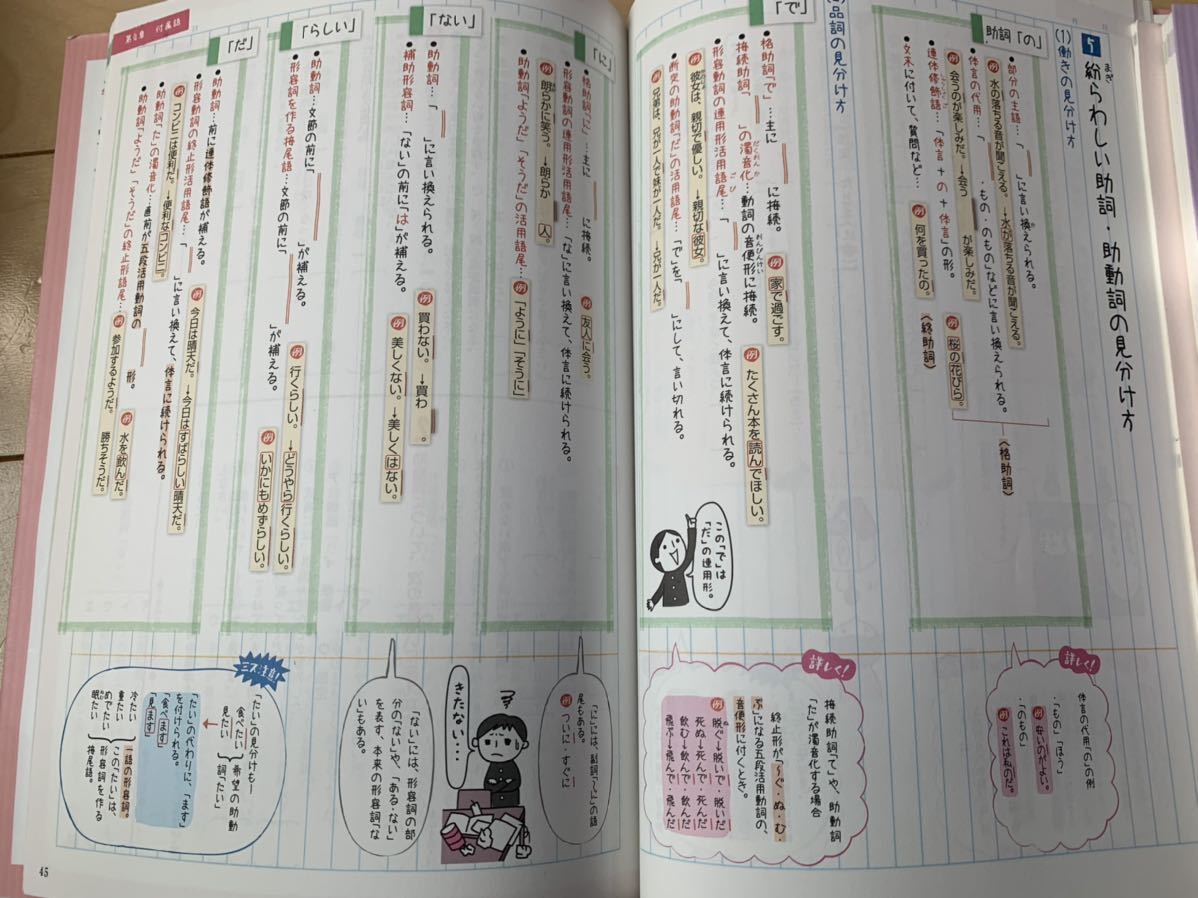 5 紛らわしい助詞・助動詞の見分け方
まぎ
(1)働きの見分け方
助詞「の」
・部分の主語…「 」に言い換えられる。
例 水の落ちる音が聞こえる。→水が落ちる音が聞こえる。
・体言の代用…「 ・もの・のもの」などに言い換えられる。
例 会うのが楽しみだ。→会う が楽しみだ。
・連体修飾語…「体言+の+体言」の形。 例 桜の花びら。
〈格助詞〉
・文末に付いて、質問など… 例 何を買ったの。 〈終助詞〉
詳しく!
体言の代用「の」の例
・「もの」「ほう」
例 安いのがよい。
・「のもの」
例 これは私のだ。
品詞の見分け方
「で」
・格助詞「で」…主に に接続。 例 家で過ごす。
・接続助詞「 」の濁音化…動詞の音便形に接続。 例 たくさん本を読んでほしい。
だくおんか
おんびんけい
・形容動詞の連用形活用語尾…「 」に言い換えて、体言に続けられる。
ごび
例 彼女は、親切で優しい。→親切な彼女。
・断定の助動詞「だ」の活用語尾…「で」を「 」にして、言い切れる。
例 兄弟は、兄が一人で妹が一人だ。→兄が一人だ。
この「で」は「だ」の連用形。
詳しく!
接続助詞「て」や、助動詞「た」が濁音化する場合
終止形が「〜ぐ・ぬ・む・ぶ」になる五段活用動詞の、音便形に付くとき。
例 脱ぐ→脱いで・脱いだ
ぬ
死ぬ→死んで・死んだ
飲む→飲んで・飲んだ
飛ぶ→飛んで・飛んだ
第4章 付属語
「に」
・格助詞「に」…主に に接続。 例 友人に会う。
・形容動詞の連用形活用語尾…「な」に言い換えて、体言に続けられる。
例 朗らかに笑う。→朗らか 人。
・助動詞「ようだ」「そうだ」の活用語尾… 例 「ように」「そうに」
「に」には、副詞「〜に」の語尾もある。
例 ついに・すぐに
「ない」
・助動詞…「 」に言い換えられる。 例 買わない。→買わ 。
・補助形容詞…「ない」の前に「は」が補える。 例 美しくない。→美しくはない。
きたない…
「ない」には、形容詞の部分の「ない」や、「ある・ない」を表す、本来の形容詞「ない」もある。
「らしい」
・助動詞…文節の前に「 」が補える。 例 行くらしい。→どうやら行くらしい。
・形容詞を作る接尾語…文節の前に「 」が補える。 例 いかにもめずらしい。
「だ」
・助動詞…前に連体修飾語が補える。 例 今日は晴天だ。→今日はすばらしい晴天だ。
・形容動詞の終止形活用語尾…「 」に言い換えて、体言に続けられる。
例 コンビニは便利だ。→便利なコンビニ。
・助動詞「た」の濁音化…直前が五段活用動詞の 形。 例 水を飲んだ。
・助動詞「ようだ」「そうだ」の終止形語尾… 例 参加するようだ。 勝ちそうだ。
ミス注意!
「たい」の見分けも—
食べたい
見たい
希望の助動詞「たい」
「たい」の代わりに、「ます」を付けられる。
「食べます」
「見ます」
冷たい
重たい
一語の形容詞。
めでたい
眠たい
この「たい」は、形容詞を作る接尾語。
45